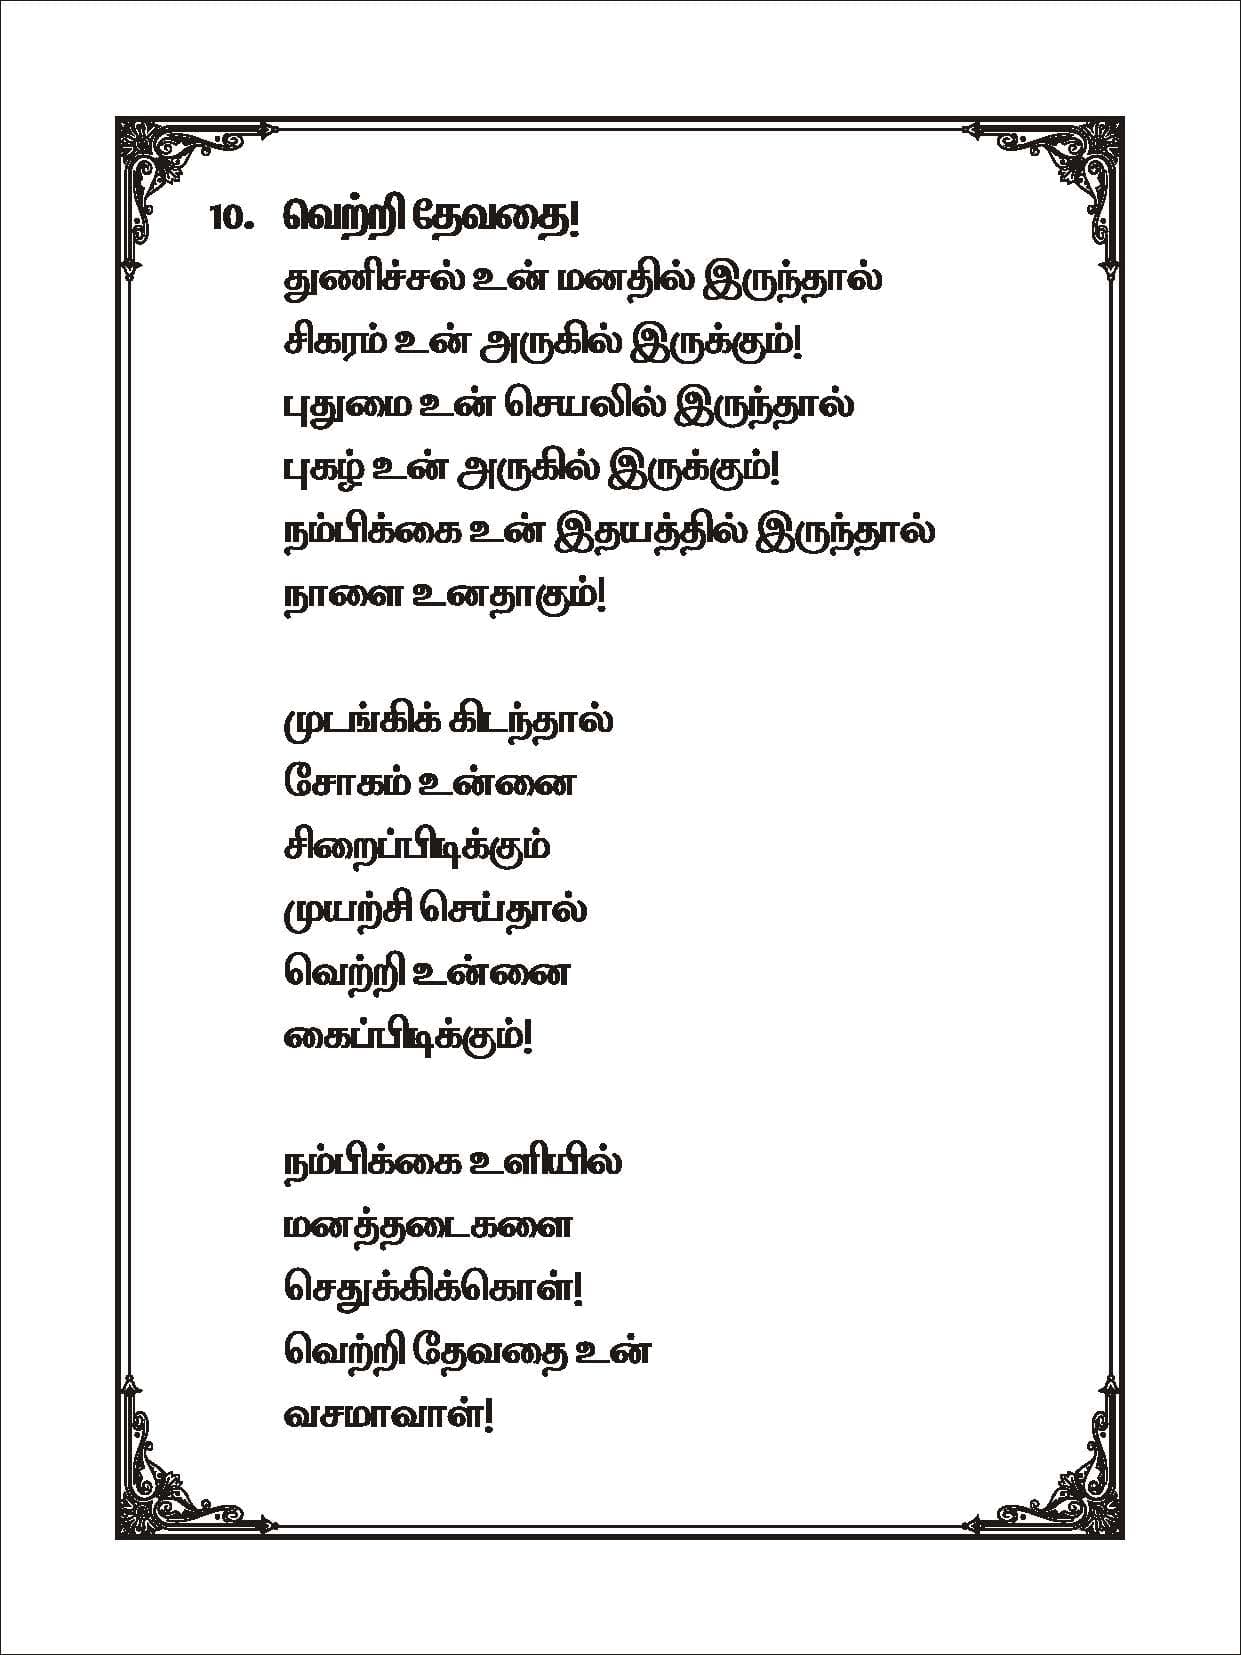 10. வெற்றி தேவதை!
துணிச்சல் உன் மனதில் இருந்தால்
சிகரம் உன் அருகில் இருக்கும்!
புதுமை உன் செயலில் இருந்தால்
புகழ் உன் அருகில் இருக்கும்!
நம்பிக்கை உன் இதயத்தில் இருந்தால்
நாளை உனதாகும்!
முடங்கிக் கிடந்தால்
சோகம் உன்னை
சிறைப்பிடிக்கும்
முயற்சி செய்தால்
வெற்றி உன்னை
கைப்பிடிக்கும்!
நம்பிக்கை உளியில்
மனத்தடைகளை
செதுக்கிக்கொள்!
வெற்றி தேவதை உன்
வசமாவாள்!